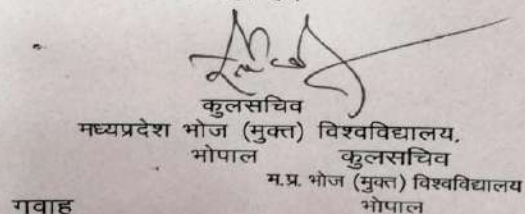 कुलसचिव
मध्यप्रदेश भोज (मुक्त) विश्वविद्यालय,
भोपाल
कुलसचिव
म.प्र. भोज (मुक्त) विश्वविद्यालय
भोपाल
गवाह